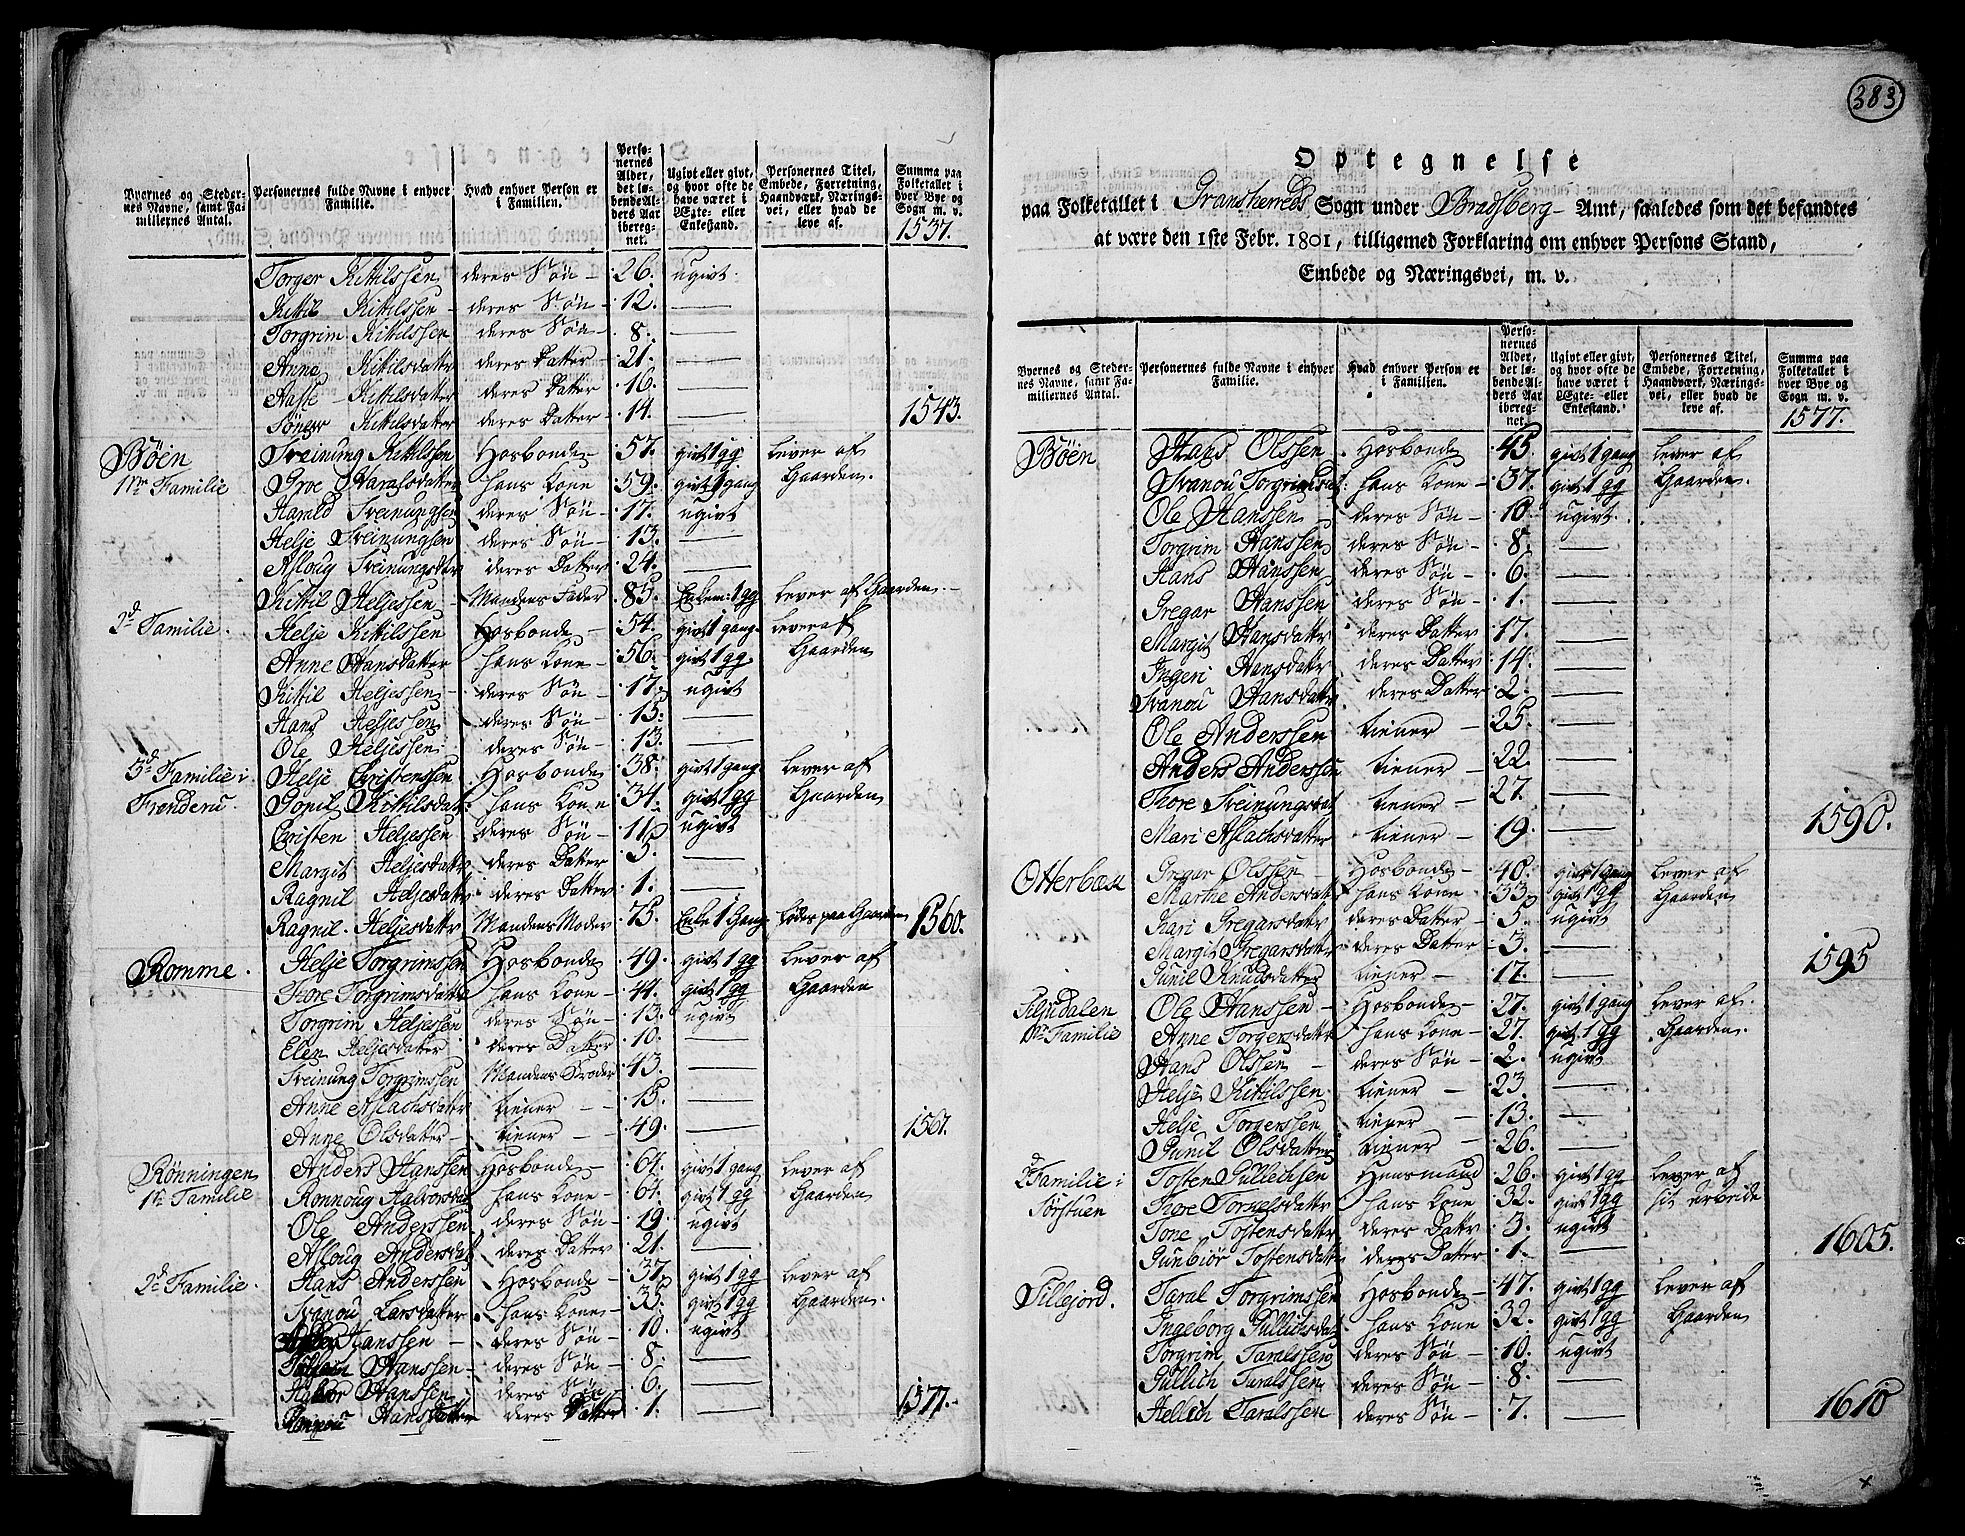 Byernes og Steder- nes Navne, samt Fa- miliernes Antal. | Personernes fulde Navne i enhver Familie. | Hvad enhver Person er i Familien. | Perso- nernes Alder, det lø- bende Al- ders Aar ibereg- net. | Ugivt eller givt, og hvor ofte de have været i Ægte- eller Enkestand. | Personernes Titel, Embede, Forretning, Haandværk, Nærings- vei, eller hvad de leve af. | Summa paa Folketallet i hver Bye og Sogn m. v. 1537.
Torger Kittilssen deres Søn 26. ugivt
Kittil Kittilssen deres Søn 12. —
Torgrim Kittilssen deres Søn 8. —
Anne Kittilsdatter deres Datter 21. —
Aasse Kittilsdatter deres Datter 16. —
Kittilsdatter deres Datter 14. — 1543.
Bøen Sveinung Kittilssen Hosbonde 57. givt 1 gg lever af
1ste Familie Groe Haraldsdatter hans Kone 59. givt 1 gang Gaarden.
Harald Sveinungsen deres Søn 17. ugivt
Helje Sveinungsen deres Søn 13. —
Asloug Sveinungsdatr deres Datter 24. —
Kittil Heljessen Mandens Fader 85. Enkem: 1 gg lever af Gaarden.
2d Familie. Helje Kittilssen Hosbonde 54. givt 1 gang lever af
Anne Hansdatter hans Kone 56. givt 1 gg Gaarden
Kittil Heljessen deres Søn 17. ugivt
Hans Heljessen deres Søn 15. —
Ole Heljessen deres Søn 13. —
3d Familie i Helje Christenssen Hosbonde 38. givt 1 gang lever af
Gonil Kittilsdatr hans Kone 34. givt 1 gg Gaarden
Christen Heljessen deres Søn 11. ugivt
Margit Heljesdattr deres Datter 5. —
Ragnil Heljesdattr deres Datter 1. —
Ragnil Heljesdattr Mandens Moder 75. Enke 1 Gang fødes paa Gaarden 1560.
Romme. Helje Torgrimssen Hosbonde 49. givt 1 gg lever af
Tore Torgrimsdatter hans Kone 44. givt 1 gg Gaarden
Torgrim Heljessen deres Søn 13. ugivt
Elen Heljesdatter deres Datter 10. —
Sveinung Torgrimssen Mandens Broder 43. —
Anne Aslachsdattr tiener 15. —
Anne Olsdatter tiener 49. — 1567.
Rønningen Anders Hanssen Hosbonde 61. givt 1 gang lever af
1ste Familie Ronnoug Halvorsdatr hans Kone 61. givt 1 gg Gaarden
Ole Anderssen deres Søn 19. ugivt
Asloug Andersdatr deres Datter 21. —
2d Familie. Hans Anderssen Hosbonde 37. givt 1 gg lever af
Svanou Larsdatter hans Kone 35. givt 1 gg Gaarden.
Hanssen deres Søn 10. ugivt
Hanssen deres Søn 8. —
Halvor Hanssen deres Søn 6. —
Hansdatter deres Datter 1. — 1577.
383
Optegnelse
paa Folketallet i Gransherreds Sogn under Bradsberg Amt, saaledes som det befandtes
at være den 1ste Febr. 1801, tilligemed Forklaring om enhver Persons Stand,
Embede og Næringsvei, m. v.
Byernes og Steder- nes Navne, samt Fa- miliernes Antal. | Personernes fulde Navne i enhver Familie. | Hvad enhver Person er i Familien. | Perso- nernes Alder, det lø- bende Al- ders Aar ibereg- net. | Ugivt eller givt, og hvor ofte de have været i Ægte- eller Enkestand. | Personernes Titel, Embede, Forretning, Haandværk, Nærings- vei, eller hvad de leve af. | Summa paa Folketallet i hver Bye og Sogn m. v. 1577.
Bøen Hans Olssen Hosbonde 45. givt 1 gang lever af
Svanou Torgrimsdat: hans Kone 37. givt 1 gg Gaarden.
Ole Hanssen deres Søn 10. ugivt.
Torgrim Hanssen deres Søn 8. —
Hans Hanssen deres Søn 6. —
Gregar Hanssen deres Søn 1. —
Margit Hansdattr deres Datter 17. —
Ingeri Hansdattr deres Datter 14. —
Svanou Hansdattr deres Datter 2. —
Ole Anderssen tiener 25. —
Anders Anderssen tiener 22. —
Tore Sveinungsdat tiener 27. —
Mari Aslachsdatter tiener 19. — 1590.
Otterbæk Gregar Olssen Hosbonde 40. givt 1 gang lever af
Marthe Andersdatr hans Kone 33. givt 1 gg Gaarden
Kari Gregarsdattr deres Datter 5. ugivt
Margit Gregarsdattr deres Datter 3. —
Gunil Knudsdatter tiener 17. — 1595
Ole Hanssen Hosbonde 27. givt 1 gang lever af
1ste Familie Anne Torgersdattr hans Kone 27. givt 1 gg Gaarden.
Hans Olssen deres Søn 2. ugivt
Helje Kittilssen tiener 23. —
Helje Torgerssen tiener 13. —
Gunil Olsdatter tiener 26. —
2d Familie i Tosten Gullichsen Huusmand 26. givt 1 gg lever af
Sørstuen Tore hans Kone 32. givt 1 gg sit arbeide
Tone Tostensdattr deres Dattr 3. ugivt
Gunbiør Tostensdattr deres Datter 1. — 1605.
Tillejord. Taral Torgrimssen Hosbonde 47. givt 1 gg lever af
Ingeborg Gullichsdat hans Kone 32. givt 1 gg Gaarden
Torgrim Taralssen deres Søn 10. ugivt
Gullich Taralssen deres Søn 8. —
Hellich Taralssen deres Søn 7. — 1610